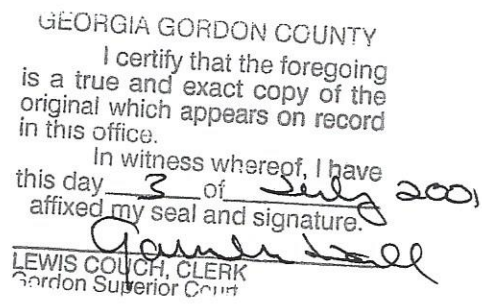 GEORGIA GORDON COUNTY
I certify that the foregoing
is a true and exact copy of the
original which appears on record
in this office.
In witness whereof, I have
this day 3 of July 2001
affixed my seal and signature.
LEWIS COUCH, CLERK
Gordon Superior Court